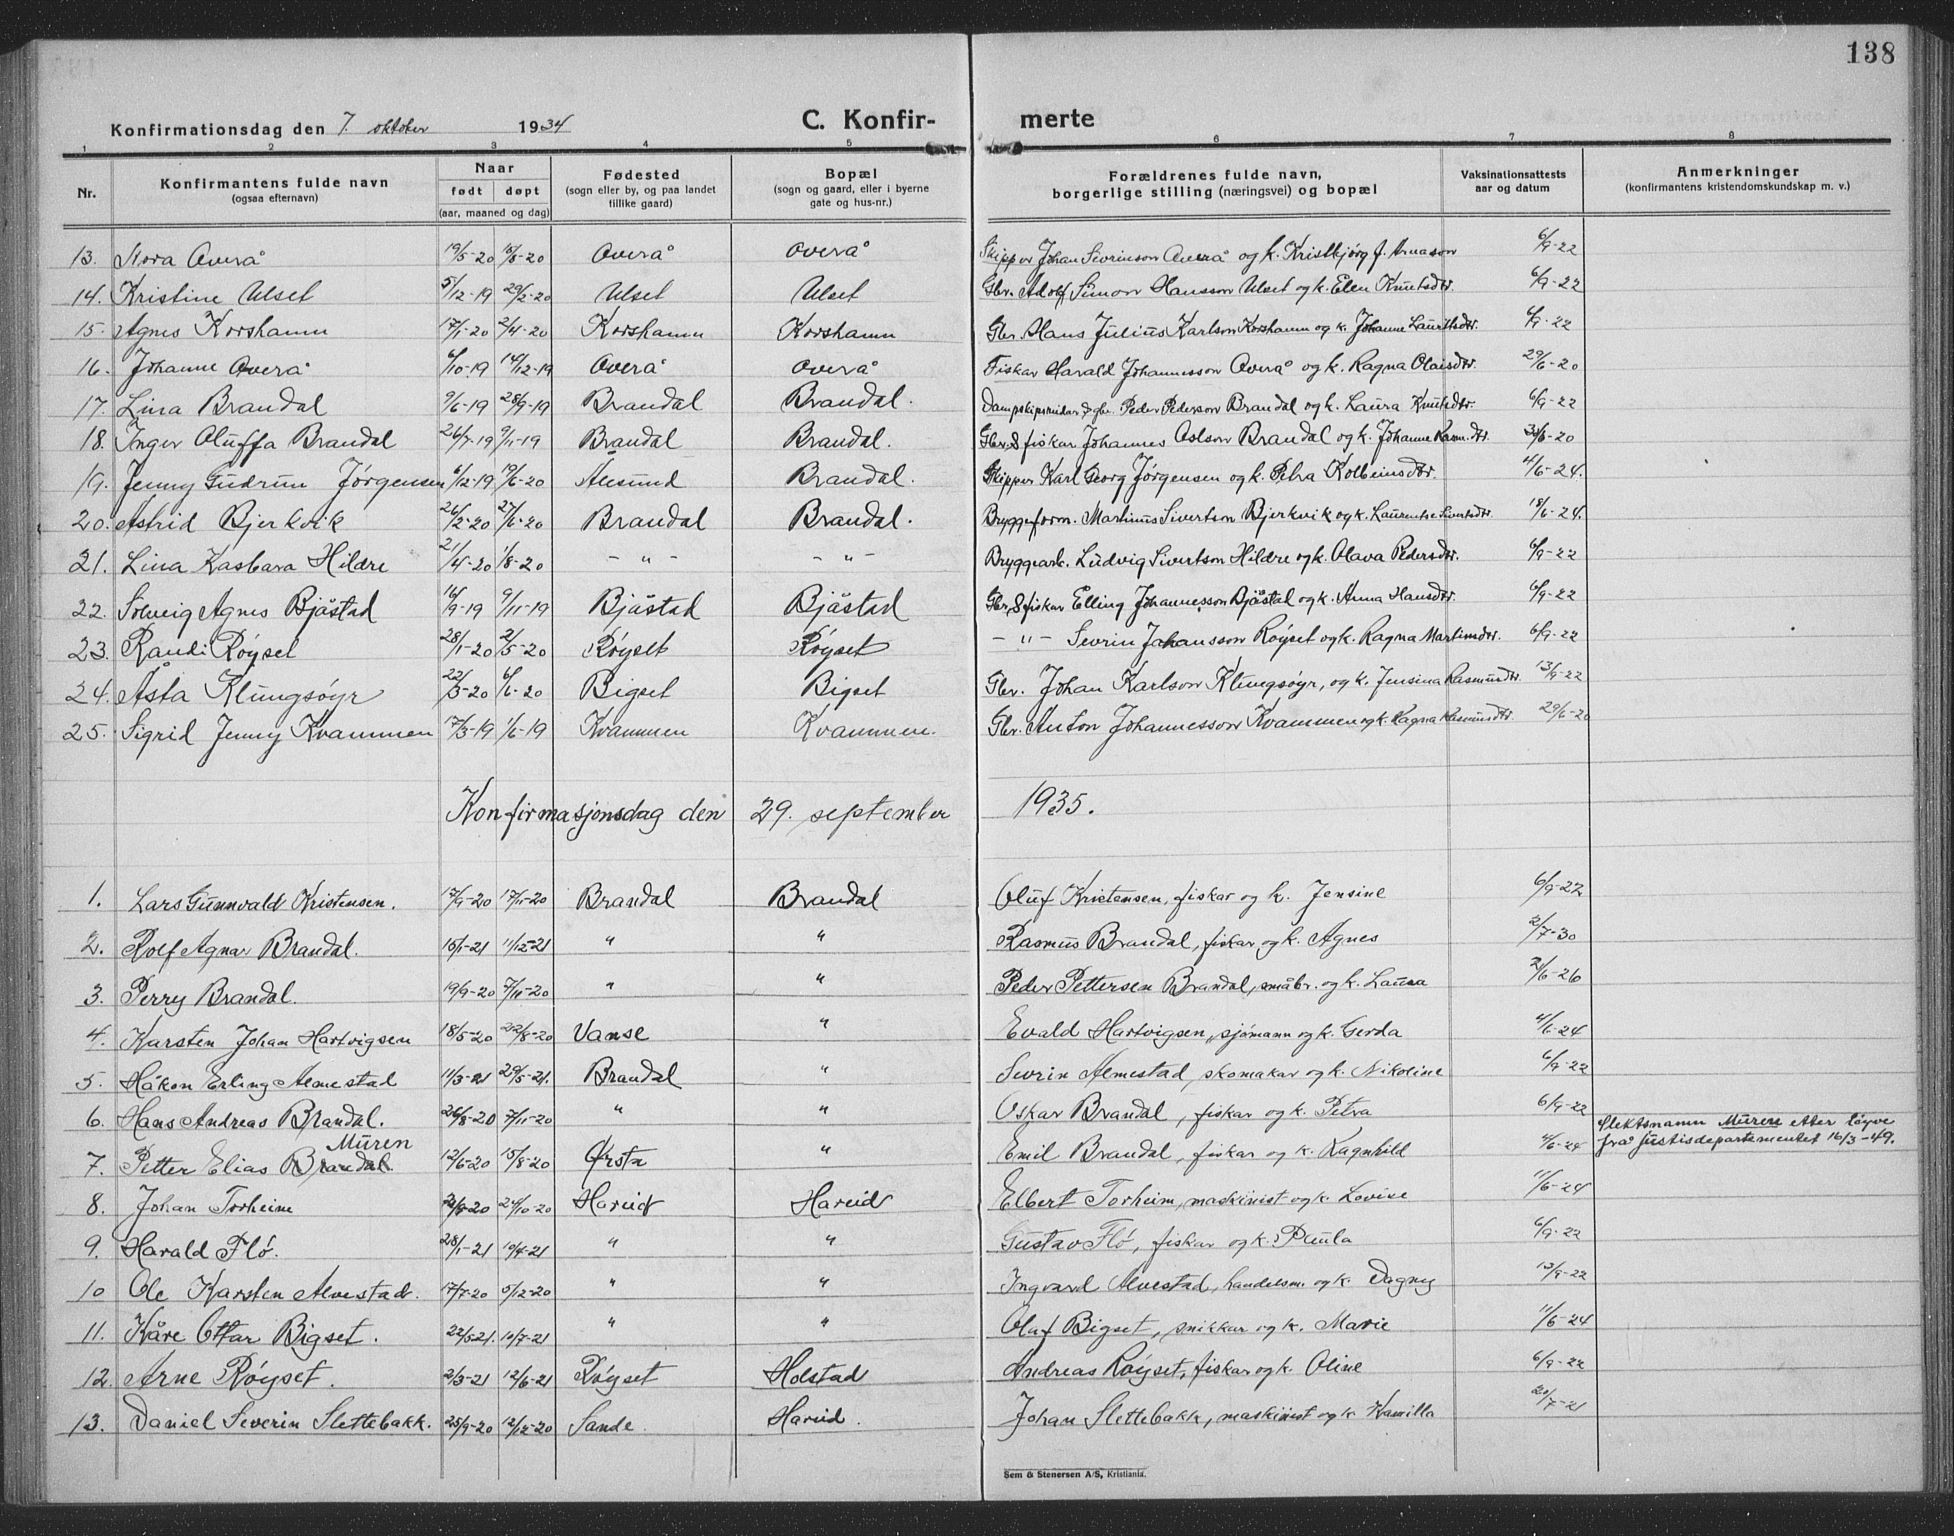 138
Konfirmationsdag den 7. oktober 1934 C. Konfirmerte
1 2 3 4 5 6 7 8
Nr. Konfirmantens fulde navn (ogsaa efternavn) Naar født døpt (aar, maaned og dag) Fødested (sogn eller by, og paa landet tillike gaard) Bopæl (sogn og gaard, eller i byerne gate og hus-nr.) Forældrenes fulde navn, borgerlige stilling (næringsvei) og bopæl Vaksinationsattests aar og datum Anmerkninger (konfirmantens kristendomskundskap m. v.)
13. Nora Overå 19/5-20 15/8-20 Overå Overå Skipper Johan Sivrinson Overå og k. Kristbjørg f. Arnason 6/9-22
14. Kristine Ulset 5/12-19 29/2-20 Ulset Ulset Gbr. Adolf Simon Hansson Ulset og k. Elen Knutsdtr. 6/9-22
15. Agnes Korshamn 17/1-20 2/4-20 Korshamn Korshamn Gbr. Hans Julius Karlson Korshamn og k. Johanne Lauritsdtr. 6/9-22
16. Johanne Overå 6/10-19 14/12-19 Overå Overå Fiskar Harald Johannesson Overå og k. Ragna Olaisdtr. 29/6-20
17. Lina Brandal 9/6-19 28/9-19 Brandal Brandal. Dampskipsreidar & gbr. Peder Pederson Brandal og k. Laura Knutsdtr. 6/9-22
18. Inger Oluffa Brandal 26/7-19 9/11-19 Brandal Brandal. Gbr. & fiskar Johannes Aslson Brandal og k. Johanne Rasm.dtr. /6-20
19. Jenny Gudrun Jørgensen 6/12-19 19/6-20 Ålesund Brandal. Skipper Karl Georg Jørgensen og k. Petra Kolbeinsdtr. 4/6-24.
20. Astrid Bjerkvik 26/2-20 27/6-20 Brandal Brandal. Bryggeform. Martinus Sivertson Bjerkvik og k. Laurentse Sivertsdtr. 18/6-24.
21. Lina Kasbara Hildre 21/4-20 1/8-20 - " - - " - Bryggearb. Ludvig Sivertson Hildre og k. Olava Pedersdtr. 6/9-22
22. Solveig Agnes Bjåstad 16/9-19 9/11-19 Bjåstad Bjåstad Gbr. & fiskar Elling Johannesson Bjåstad og k. Anna Hansdtr. 6/9-22
23. Randi Röyset 28/1-20 2/5-20 Röyset Röyset - " - Sevrin Johansson Röyset og k. Ragna Martinsdtr. 6/9-22
24. Åsta Klungsöyr 22/3-20 6/6-20 Bigset Bigset Gbr. Johan Karlson Klungsöyr, og k. Jensina Rasmusdtr. 13/9-22
25. Sigrid Jenny Kvammen 17/3-19 1/6-19 Kvammen Kvammen. Gbr. Anton Johannesson Kvammen og k. Ragna Rasmusdtr. 29/6-20
Konfirmasjonsdag den 29. september 1935.
1. Lars Gunnvald Kristensen. 17/9-20 17/11-20 Brandal Brandal Oluf Kristensen, fiskar og k. Jensine 6/9-22
2. Rolf Agnar Brandal. 15/1-21 11/12-21 " " Rasmus Brandal, fiskar, og k. Agnes 2/7-30
3. Perry Brandal. 19/9-20 7/11-20 " " Peder Pettersen Brandal, småbr. og k. Laura /6-26
4. Karsten Johan Hartvigsen 18/5-20 22/8-20 Vanse " Evald Hartvigsen, sjömann og k. Gerda 4/6-24
5. Håkon Erling Almestad 11/3-21 29/5-21. Brandal " Sevrin Almestad, skomakar og k. Nikoline 6/9-22
6. Hans Andreas Brandal. 26/8-20 7/11-20 " " Oskar Brandal, fiskar og k. Petra 6/9-22
7. Petter Elias Brandal Muren 12/6-20 15/8-20 Ørsta " Emil Brandal, fiskar og k. Ragnhild 4/6-24 Slektsnamn Muren etter löyve frå justisdepartementet 16/3-49.
8. Johan Torheim /9-20 24/10-20 Hareid Hareid Elbert Torheim, maskinist og k. Lovise 11/6-24
9. Harald Flö. 28/1-21 10/4-21 " " Gustav Flö, fiskar og k. Paula 6/9-22
10 Ole Karsten Alvestad. 17/7-20 5/12-20 " " Ingvard Alvestad, handelsm. og k. Dagny 13/9-22
11. Kåre Ottar Bigset. 22/5 21. 10/7-21 " " Olaf Bigset, snikkar og k. Marie 11/6-24
12. Arne Röyset. 2/3-21 12/6-21 Röyset Holstad Andreas Röyset, fiskar og k. Oline 6/9-22
13. Daniel Severin Slettebakk. 25/9-20 12/12-20 Sande Hareid. Johan Slettebakk, maskinist og k. Kamilla 20/7-21
Sem & Stenersen A/S, Kristiania.